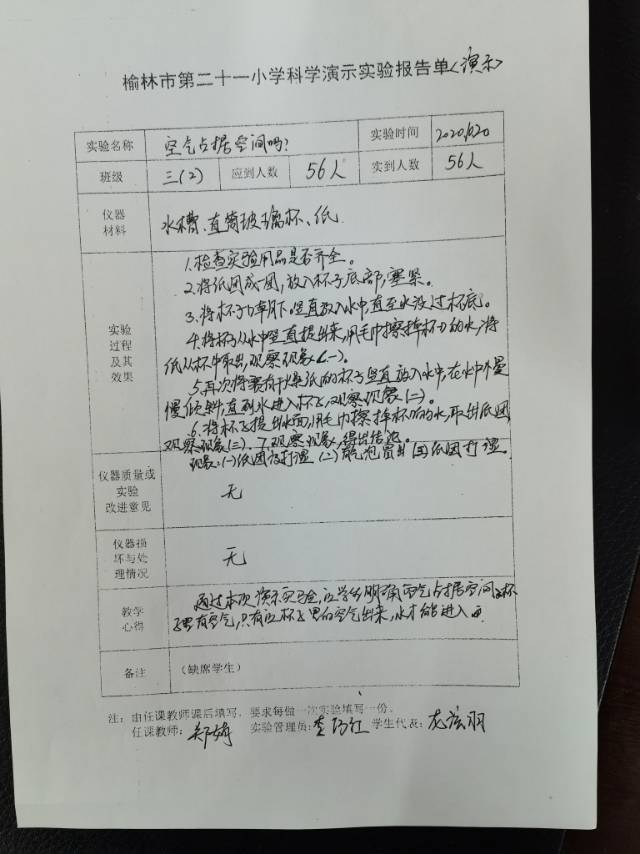 榆林市第二十一小学科学演示实验报告单(演示)
实验名称 空气占据空间吗? 实验时间 2020.6.20
班级 三(2) 应到人数 56人 实到人数 56人
仪器
材料
水槽、直筒玻璃杯、纸
实验
过程
及其
效果
1.检查实验用品是否齐全。
2.将纸团成一团,放入杯子底部,塞紧。
3.将杯子口朝下。竖直放入水中,直至水没过杯底。
4.将杯子从水中竖直提出来,用毛巾擦掉杯口的水,将
纸从杯中取出,观察现象(一)。
5.再次将装有干燥纸的杯子竖直放入水中,在水中慢
慢倾斜,直到水进入杯子,观察现象(二)。
6.将杯子提出水面,用毛巾擦掉杯口的水,取出纸团
观察现象(三)、7.观察现象,得出结论。
现象:(一)纸团没打湿 (二)气泡冒出 (三)纸团打湿。
仪器质量或
实验
改进意见
无
仪器损
坏与处
理情况
无
教学
心得
通过本次演示实验,让学生明确空气占据空间,杯
子里有空气,只有让杯子里的空气出来,水才能进入
备注 (缺席学生)
注:由任课教师课后填写,要求每做一次实验填写一份。
任课教师: 郑婷 实验管理员: 学生代表: